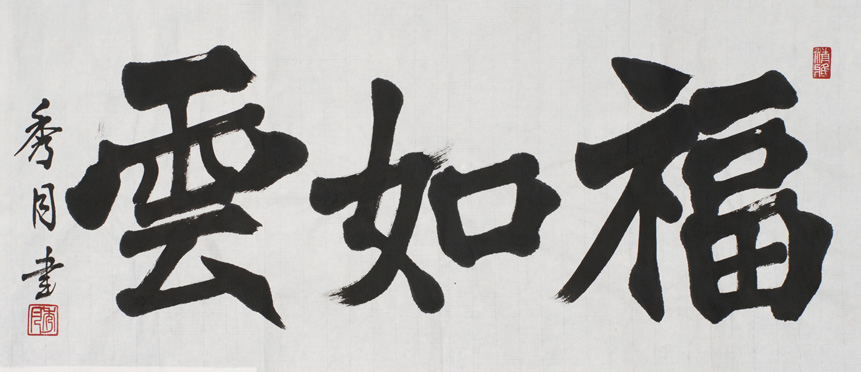 福如雲
秀月書